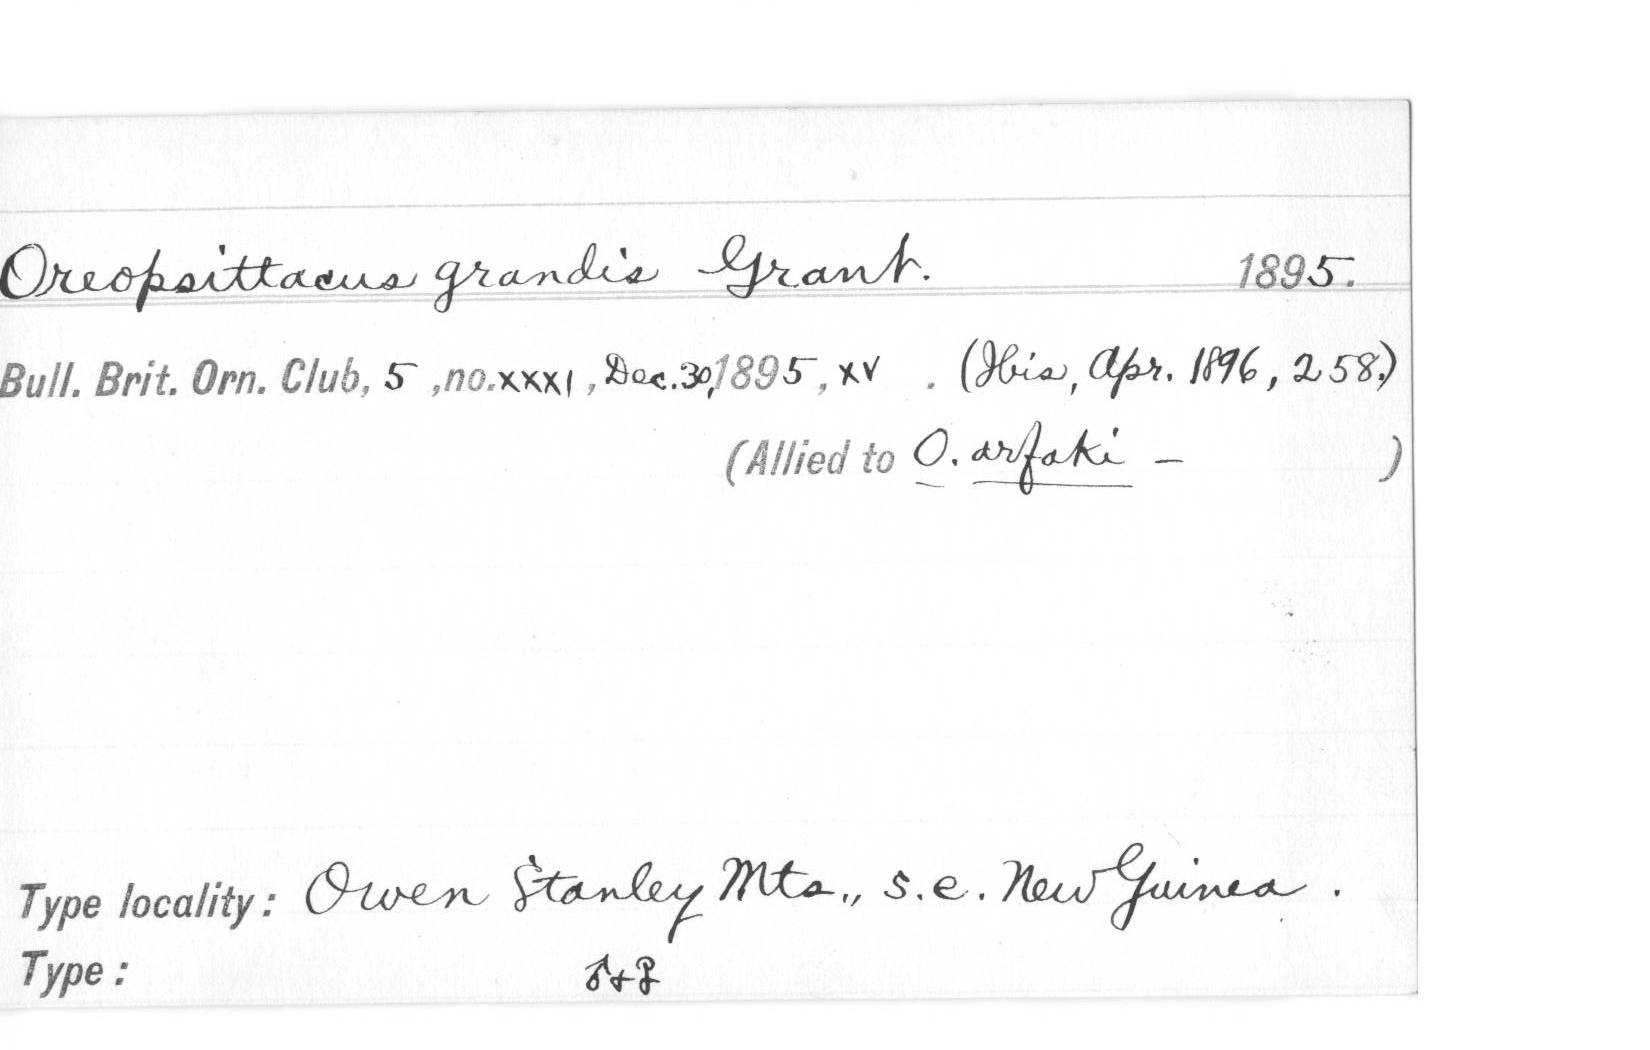 Oreopsittacus grandis Grant. 1895.
Bull. Brit. Orn. Club, 5 ,no.xxxı , Dec.30,1895, xv . (Ibis, Apr. 1896, 258.)
(Allied to O. arfaki – )
Type locality: Owen Stanley Mts., s.e. New Guinea .
Type: ♂+♀